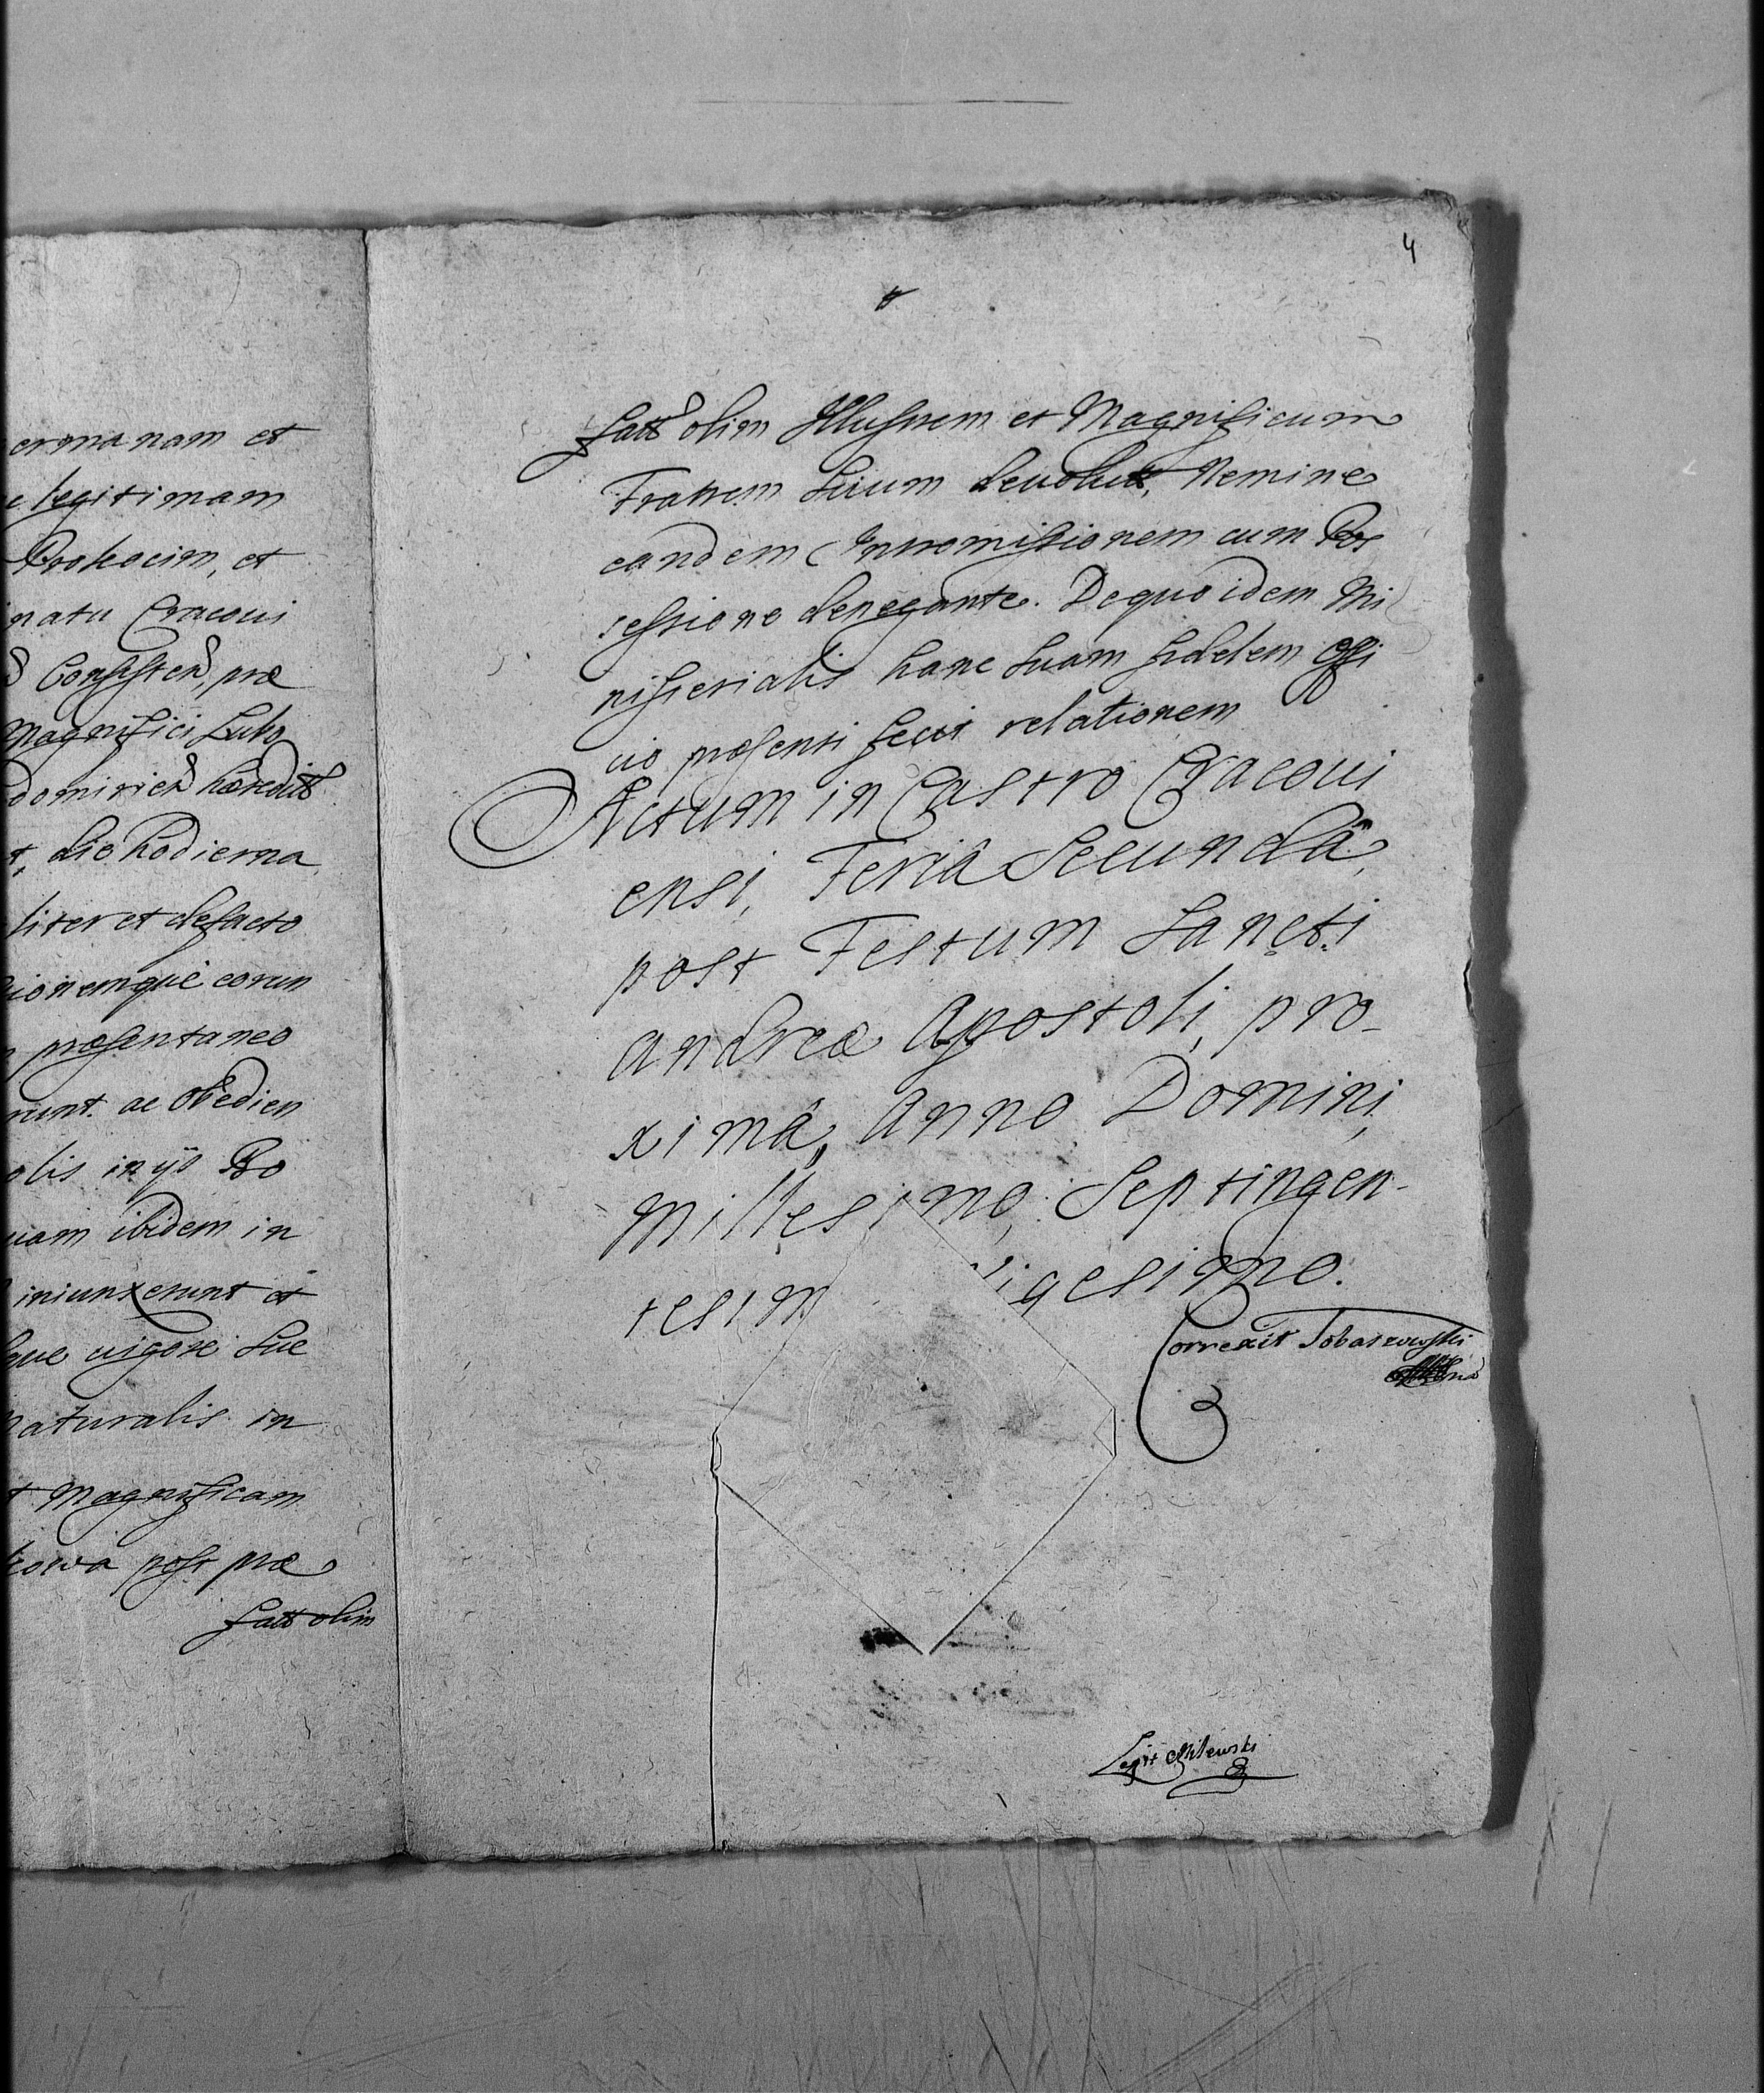 ermanam et
legitimam
Prokocim, et
natu Cracovi
Consisten, præ
Magnifici Lubo
domirien hæredit
die hodierna
liter et defacto
ionemque eorun
præsentaneo
runt. ac obedien
olis in ijs Bo
uam ibidem in
iniunxerunt et
que vigore suæ
naturalis in
t Magnificam
kowa post præ
fatt olim
4
fatt olim Illustrem et Magnificum
Fratrem Suum devolut, Nemine
eandem Intromissionem cum Pos
sessione denegante. De quo idem Mi
nisterialis hanc Suam fidelem Offi
cio præsenti fecit relationem
Actum in Castro Cracovi
ensi, Feriâ Secundâ,
post Festum Sancti
Andreæ Apostoli, pro-
ximâ, Anno Domini,
Millesimo, Septingen-
tesim igesimo.
Correxit Tobaszowski
Legit Milewski